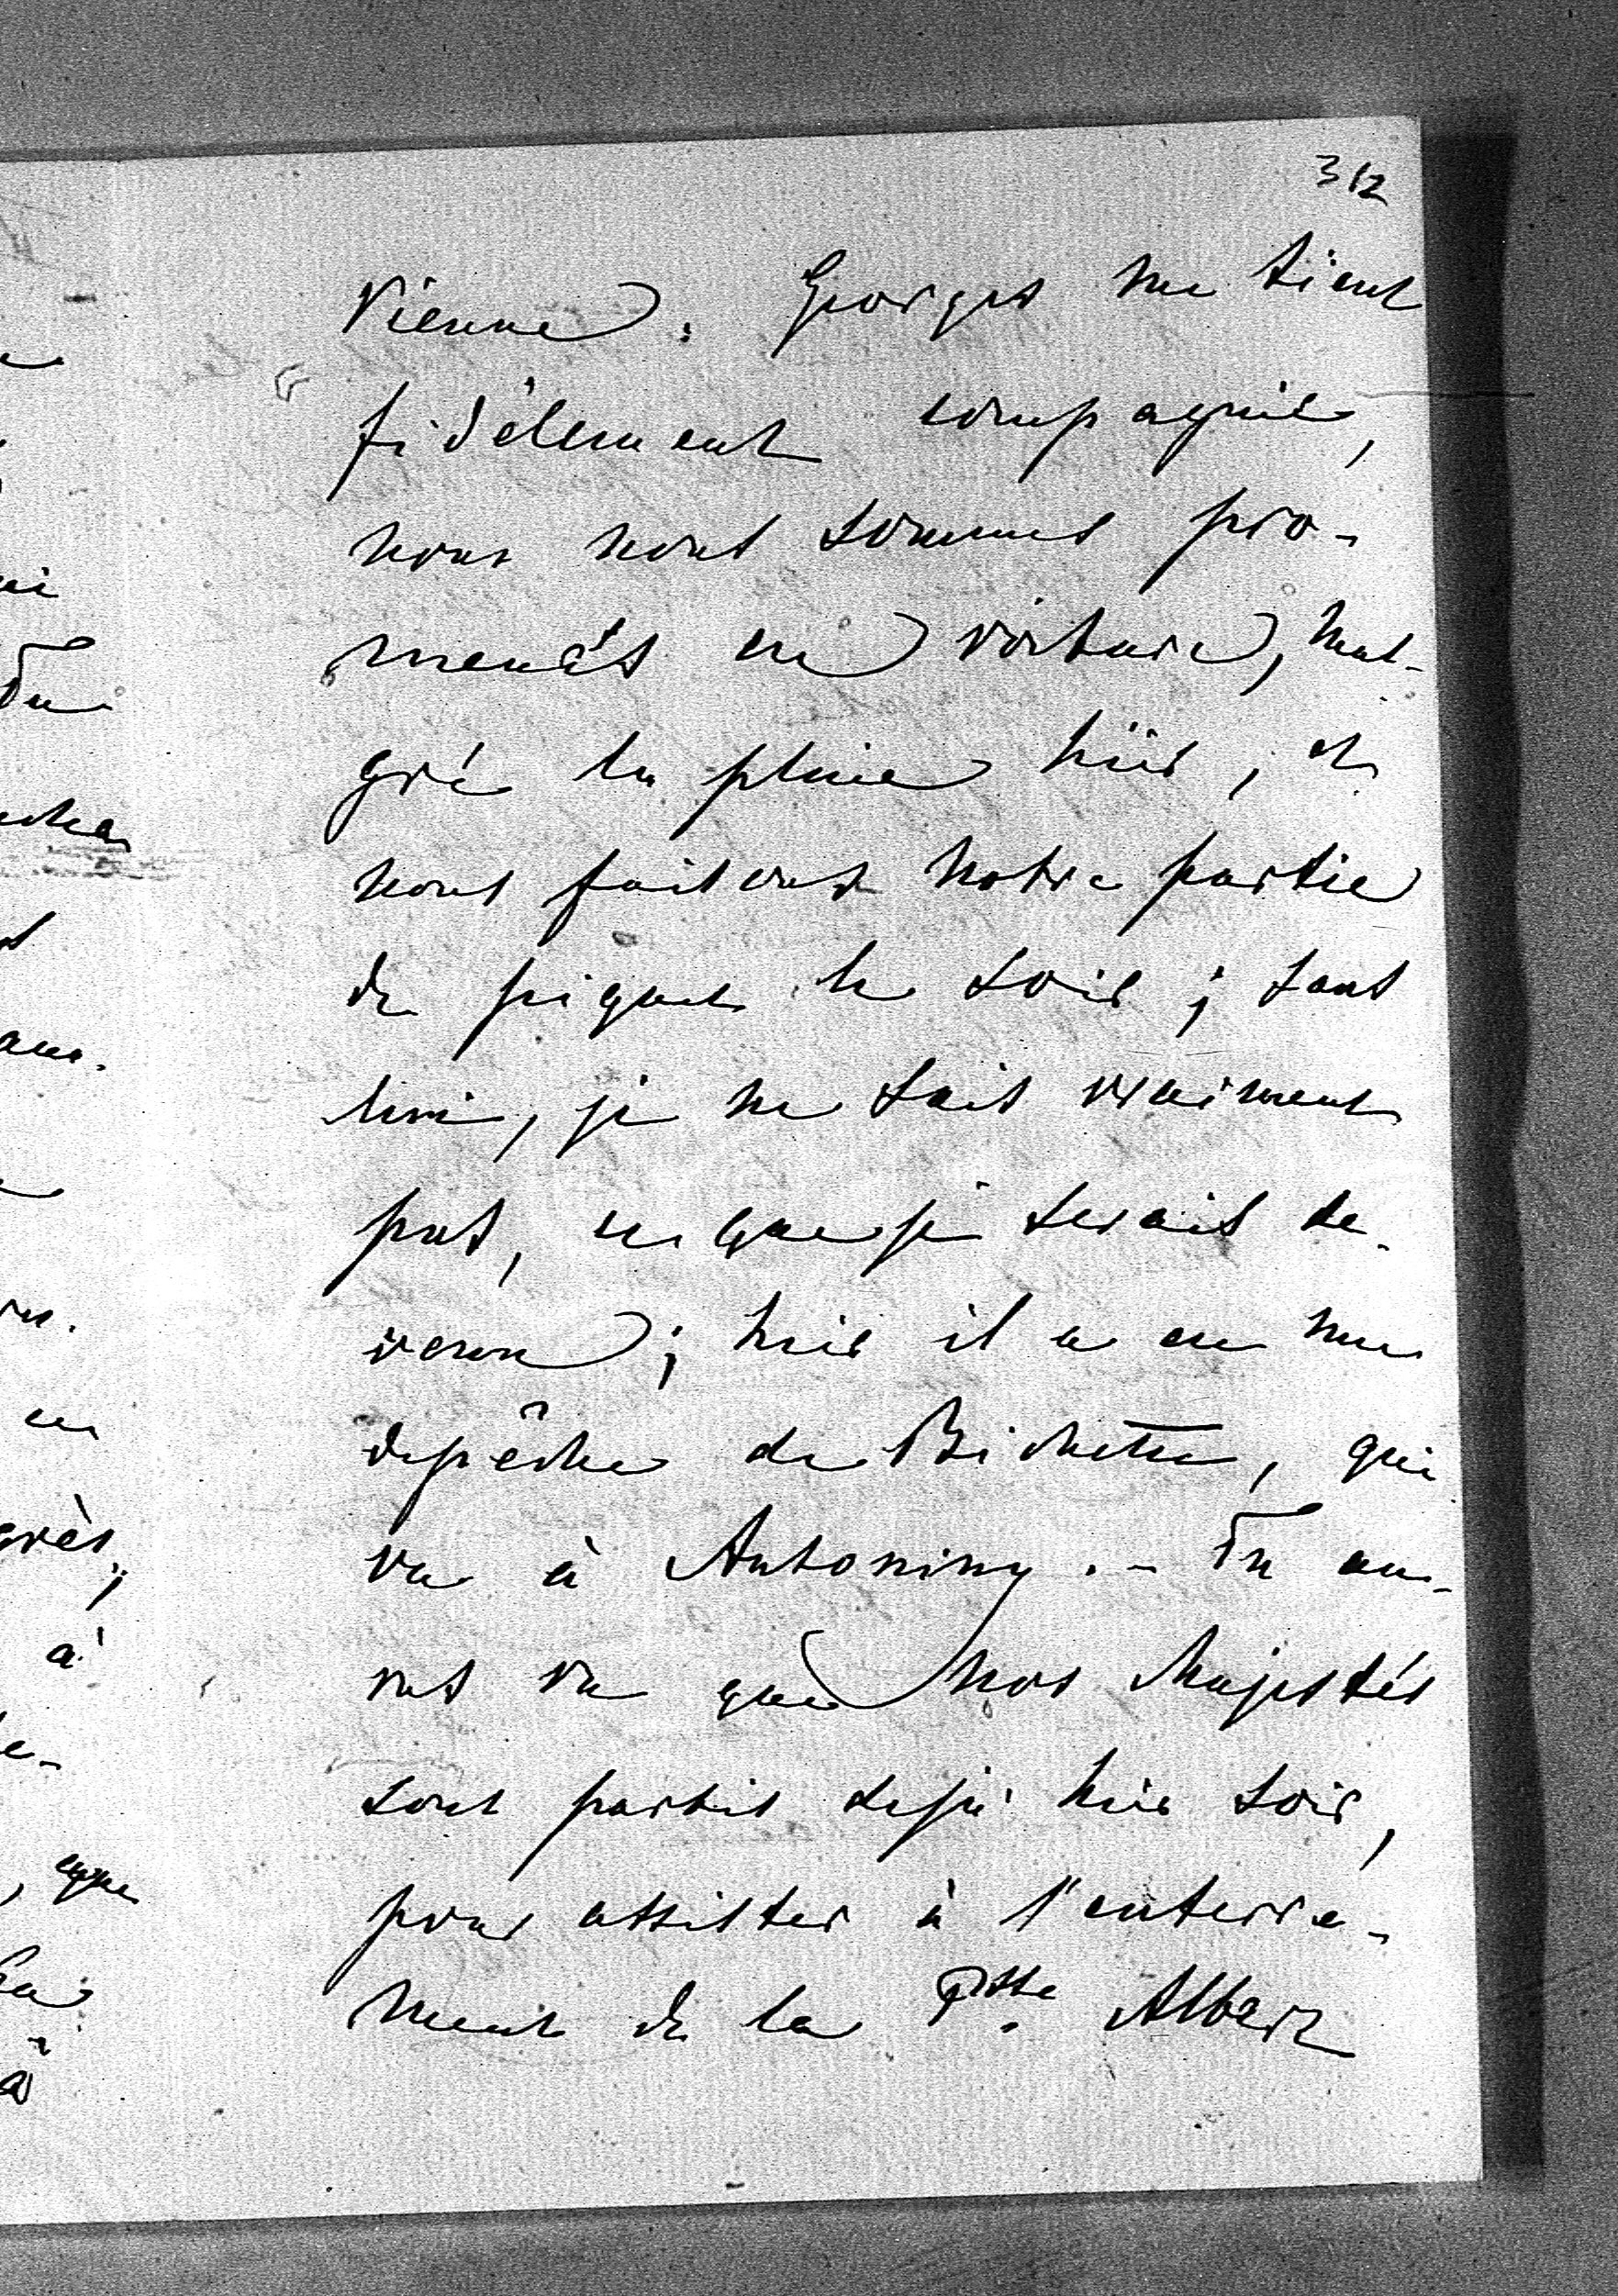 312
Vienne. Georges me tient
fidèlement compagnie,
nous nous sommes pro-
menés en voiture, mal-
gré la pluie hier, et
nous faisons notre partie
de piquet le soir ; sans
lui, je ne sais vraiment
pas, ce que je serais de-
venu ; hier il a eu une
depêche de Bichette, qui
va à Antoniny. - Tu au-
ras vu que nos Majestés
sont partis dejà hier soir,
pour assister à l'enterre-
ment de la Psse Albert